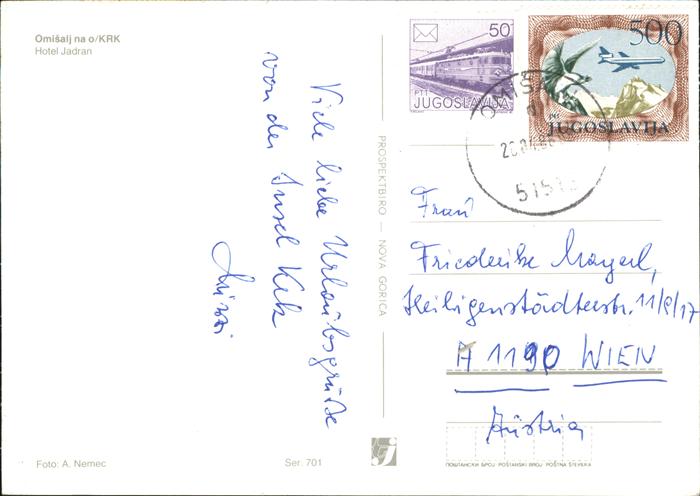 Omišalj na o/KRK
Hotel Jadran
Viele liebe Urlaubsgrüße
von der Insel Krk
Mizzi
Foto: A. Nemec
Ser. 701
PROSPEKTBIRO — NOVA GORICA
50
PTT
JUGOSLAVIJA
500
PTT
JUGOSLAVIJA
51513
Frau
Friederike Mayerl,
Heiligenstädterstr. 11/8/17
A 1190 WIEN
Austria
ПОШТАНСКИ БРОЈ POŠTANSKI BROJ POŠTNA ŠTEVILKA